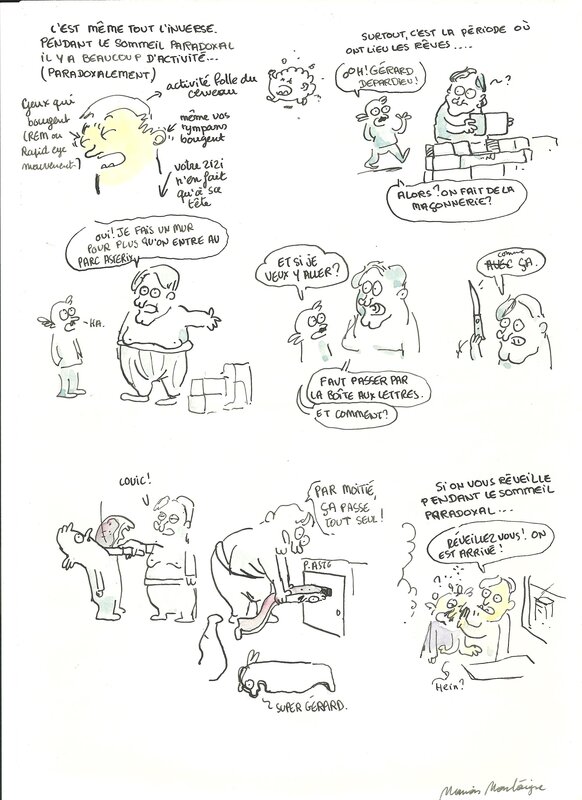 C'EST MÊME TOUT L'INVERSE.
PENDANT LE SOMMEIL PARADOXAL
IL Y A BEAUCOUP D'ACTIVITÉ...
(PARADOXALEMENT)
activité folle du
cerveau
Yeux qui
bougent
(REM ou
Rapid eye
mouvement)
même vos
tympans
bougent
votre zizi
n'en fait
qu'à sa
tête
SURTOUT, C'EST LA PÉRIODE OÙ
ONT LIEU LES RÊVES....
OH! GÉRARD
DEPARDIEU!
~?
ALORS? ON FAIT DE LA
MAÇONNERIE?
OUI! JE FAIS UN MUR
POUR PLUS QU'ON ENTRE AU
PARC ASTERIX
HA.
ET SI JE
VEUX Y ALLER?
FAUT PASSER PAR
LA BOÎTE AUX LETTRES.
ET COMMENT?
comme
AVEC ÇA.
COUIC!
PAR MOITIÉ,
ÇA PASSE
TOUT SEUL!
P. AST6
SUPER GÉRARD.
SI ON VOUS RÉVEILLE
PENDANT LE SOMMEIL
PARADOXAL...
RÉVEILLEZ VOUS! ON
EST ARRIVÉ!
Hein?
Marion Montaigne